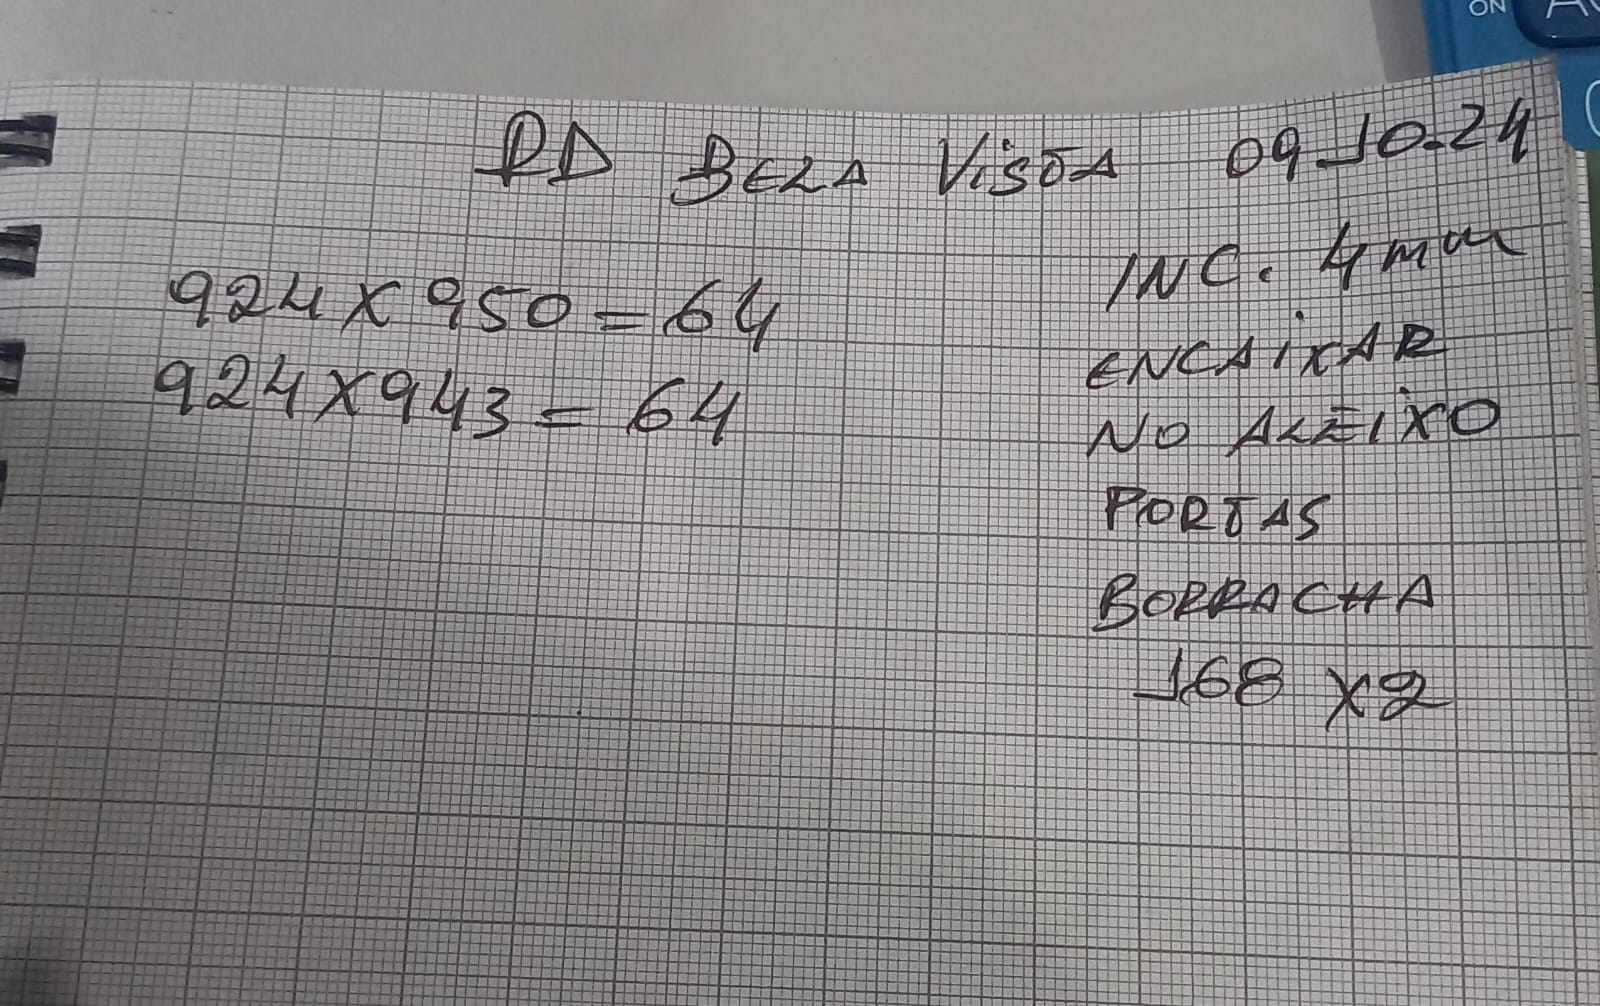 RD BELA VISTA 09.10.24
924 X 950 = 64
924 X 943 = 64
INC. 4mm
ENCAIXAR
NO ALEIXO
PORTAS
BORRACHA
168 X2
ON